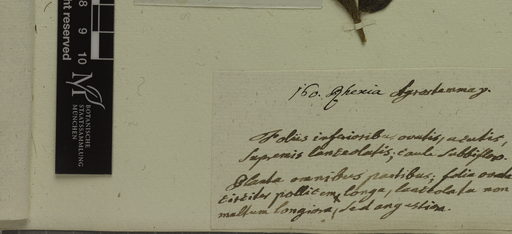 8 9 10
nt reserved
BOTANISCHE
STAATSSAMMLUNG
MÜNCHEN
160. Rhexia Agrostemma
Foliis inferioribus ovatis, acutis,
supremis lanceolatis; caule subbifloro.
Planta omnibus partibus; folia ovata
circiter pollicem longa, lanceolata non
multum longiora, sed angustiora.